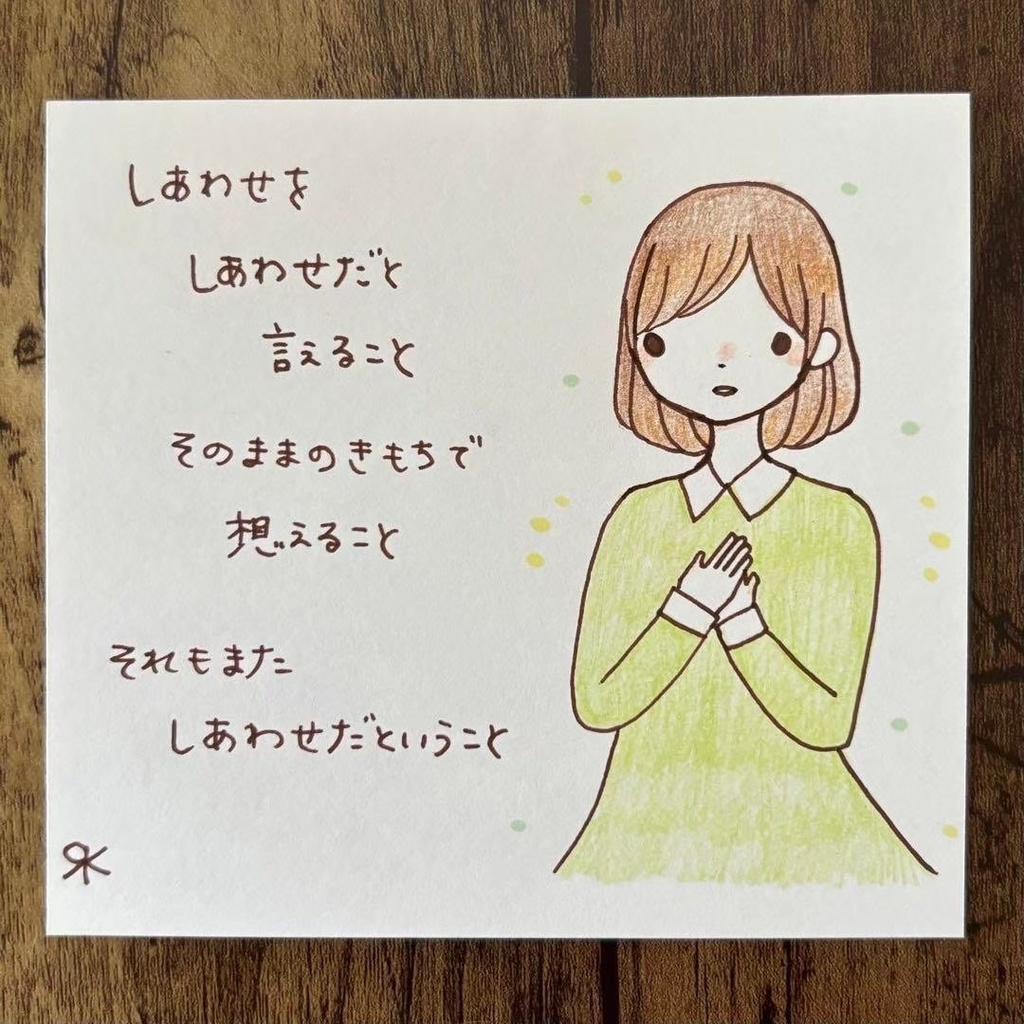 しあわせを
しあわせだと
言えること
そのままのきもちで
想えること
それもまた
しあわせだということ